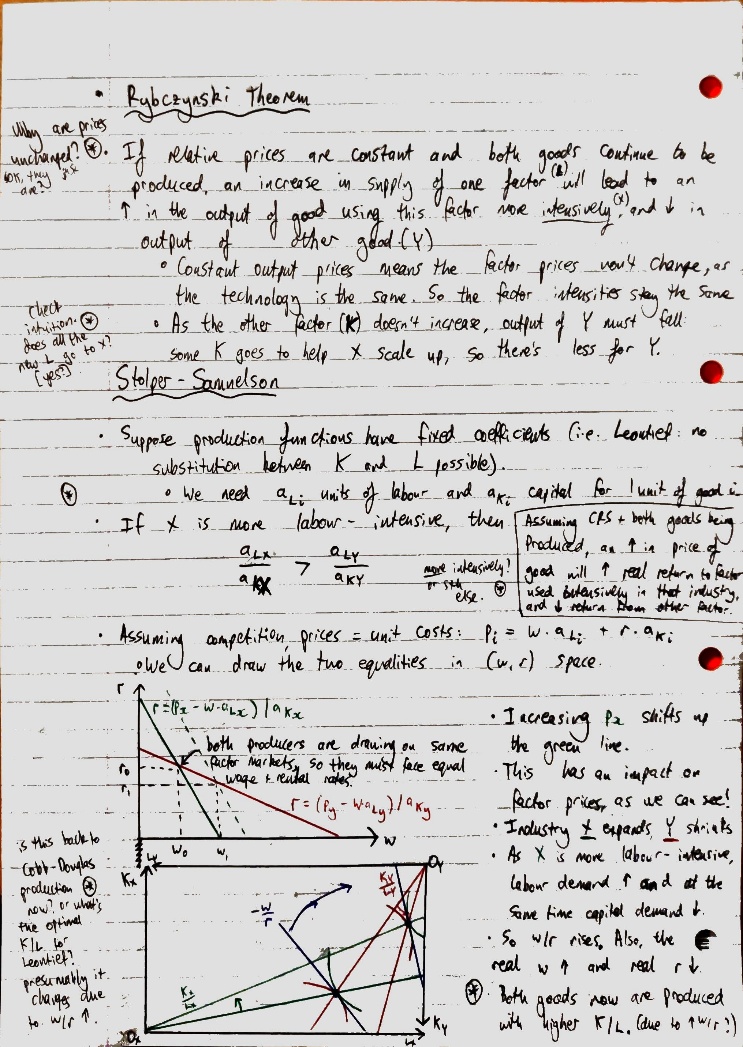 • Rybczynski Theorem
Why are prices
unchanged? ⊛
(OK, they just
are?)
• If relative prices are constant and both goods continue to be
produced, an increase in supply of one factor (L) will lead to an
↑ in the output of good using this factor more intensively (X), and ↓ in
output of other good (Y)
• Constant output prices means the factor prices won't change, as
the technology is the same. So the factor intensities stay the same
Check
intuition. ⊛
does all the
new L go to X?
[yes?]
• As the other factor (K) doesn't increase, output of Y must fall
some K goes to help X scale up, so there's less for Y.
Stolper-Samuelson
• Suppose production functions have fixed coefficients (i.e. Leontief: no
substitution between K and L possible).
⊛ • We need a_Li units of labour and a_Ki capital for 1 unit of good i
• If X is more labour-intensive, then
a_LX / a_KX > a_LY / a_KY
more intensively?
or sth
else. ⊛
Assuming CRS + both goods being
produced, an ↑ in price of
good will ↑ real return to factor
used extensively in that industry,
and ↓ return from other factor.
• Assuming competition, prices = unit costs: P_i = w·a_Li + r·a_Ki
• We can draw the two equalities in (w,r) space.
r
r = (P_x - w·a_Lx) / a_Kx
both producers are drawing on same
factor markets, so they must face equal
wage + rental rates.
r_0
r_1
r = (P_y - w·a_Ly) / a_Ky
w
w_0 w_1
• Increasing P_x shifts up
the green line.
• This has an impact on
factor prices, as we can see!
• Industry X expands, Y shrinks
• As X is more labour-intensive,
labour demand ↑ and at the
same time capital demand ↓.
• So w/r rises, Also, the
real w ↑ and real r ↓.
⊛ • Both goods now are produced
with higher K/L. (due to ↑ w/r?)
is this back to
Cobb-Douglas
production ⊛
now? or what's
the optimal
K/L for
Leontief?
presumably it
changes due
to w/r ↑.
K_x
L_Y
O_Y
K_Y/L_Y
-w/r
K_x/L_x
O_x
L_x
K_Y